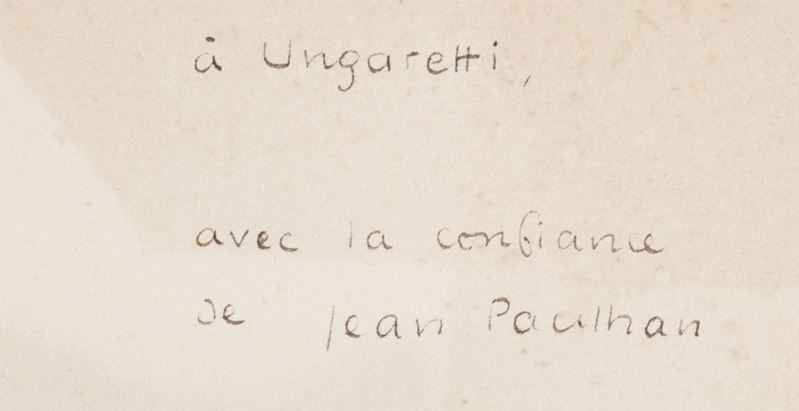 à Ungaretti,
avec la confiance
de Jean Paulhan